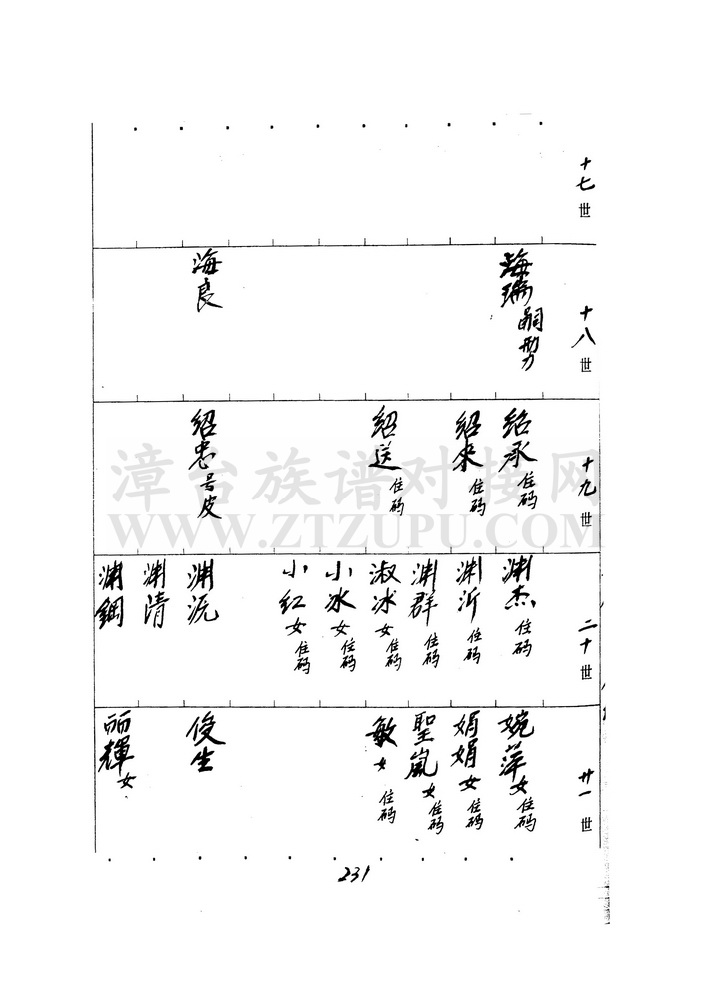 十七世
十八世
海瑞嗣男
海良
十九世
绍承 住码
绍来 住码
绍送 住码
绍忠 号皮
二十世
渊杰 住码
渊沂 住码
渊群 住码
淑冰 女 住码
小冰 女 住码
小红 女 住码
渊沅
渊清
渊鋼
廿一世
婉萍 女 住码
娟娟 女 住码
聖嵐 女 住码
敏 女 住码
俊生
丽輝 女
231
漳台族谱对接网
WWW.ZTZUPU.COM